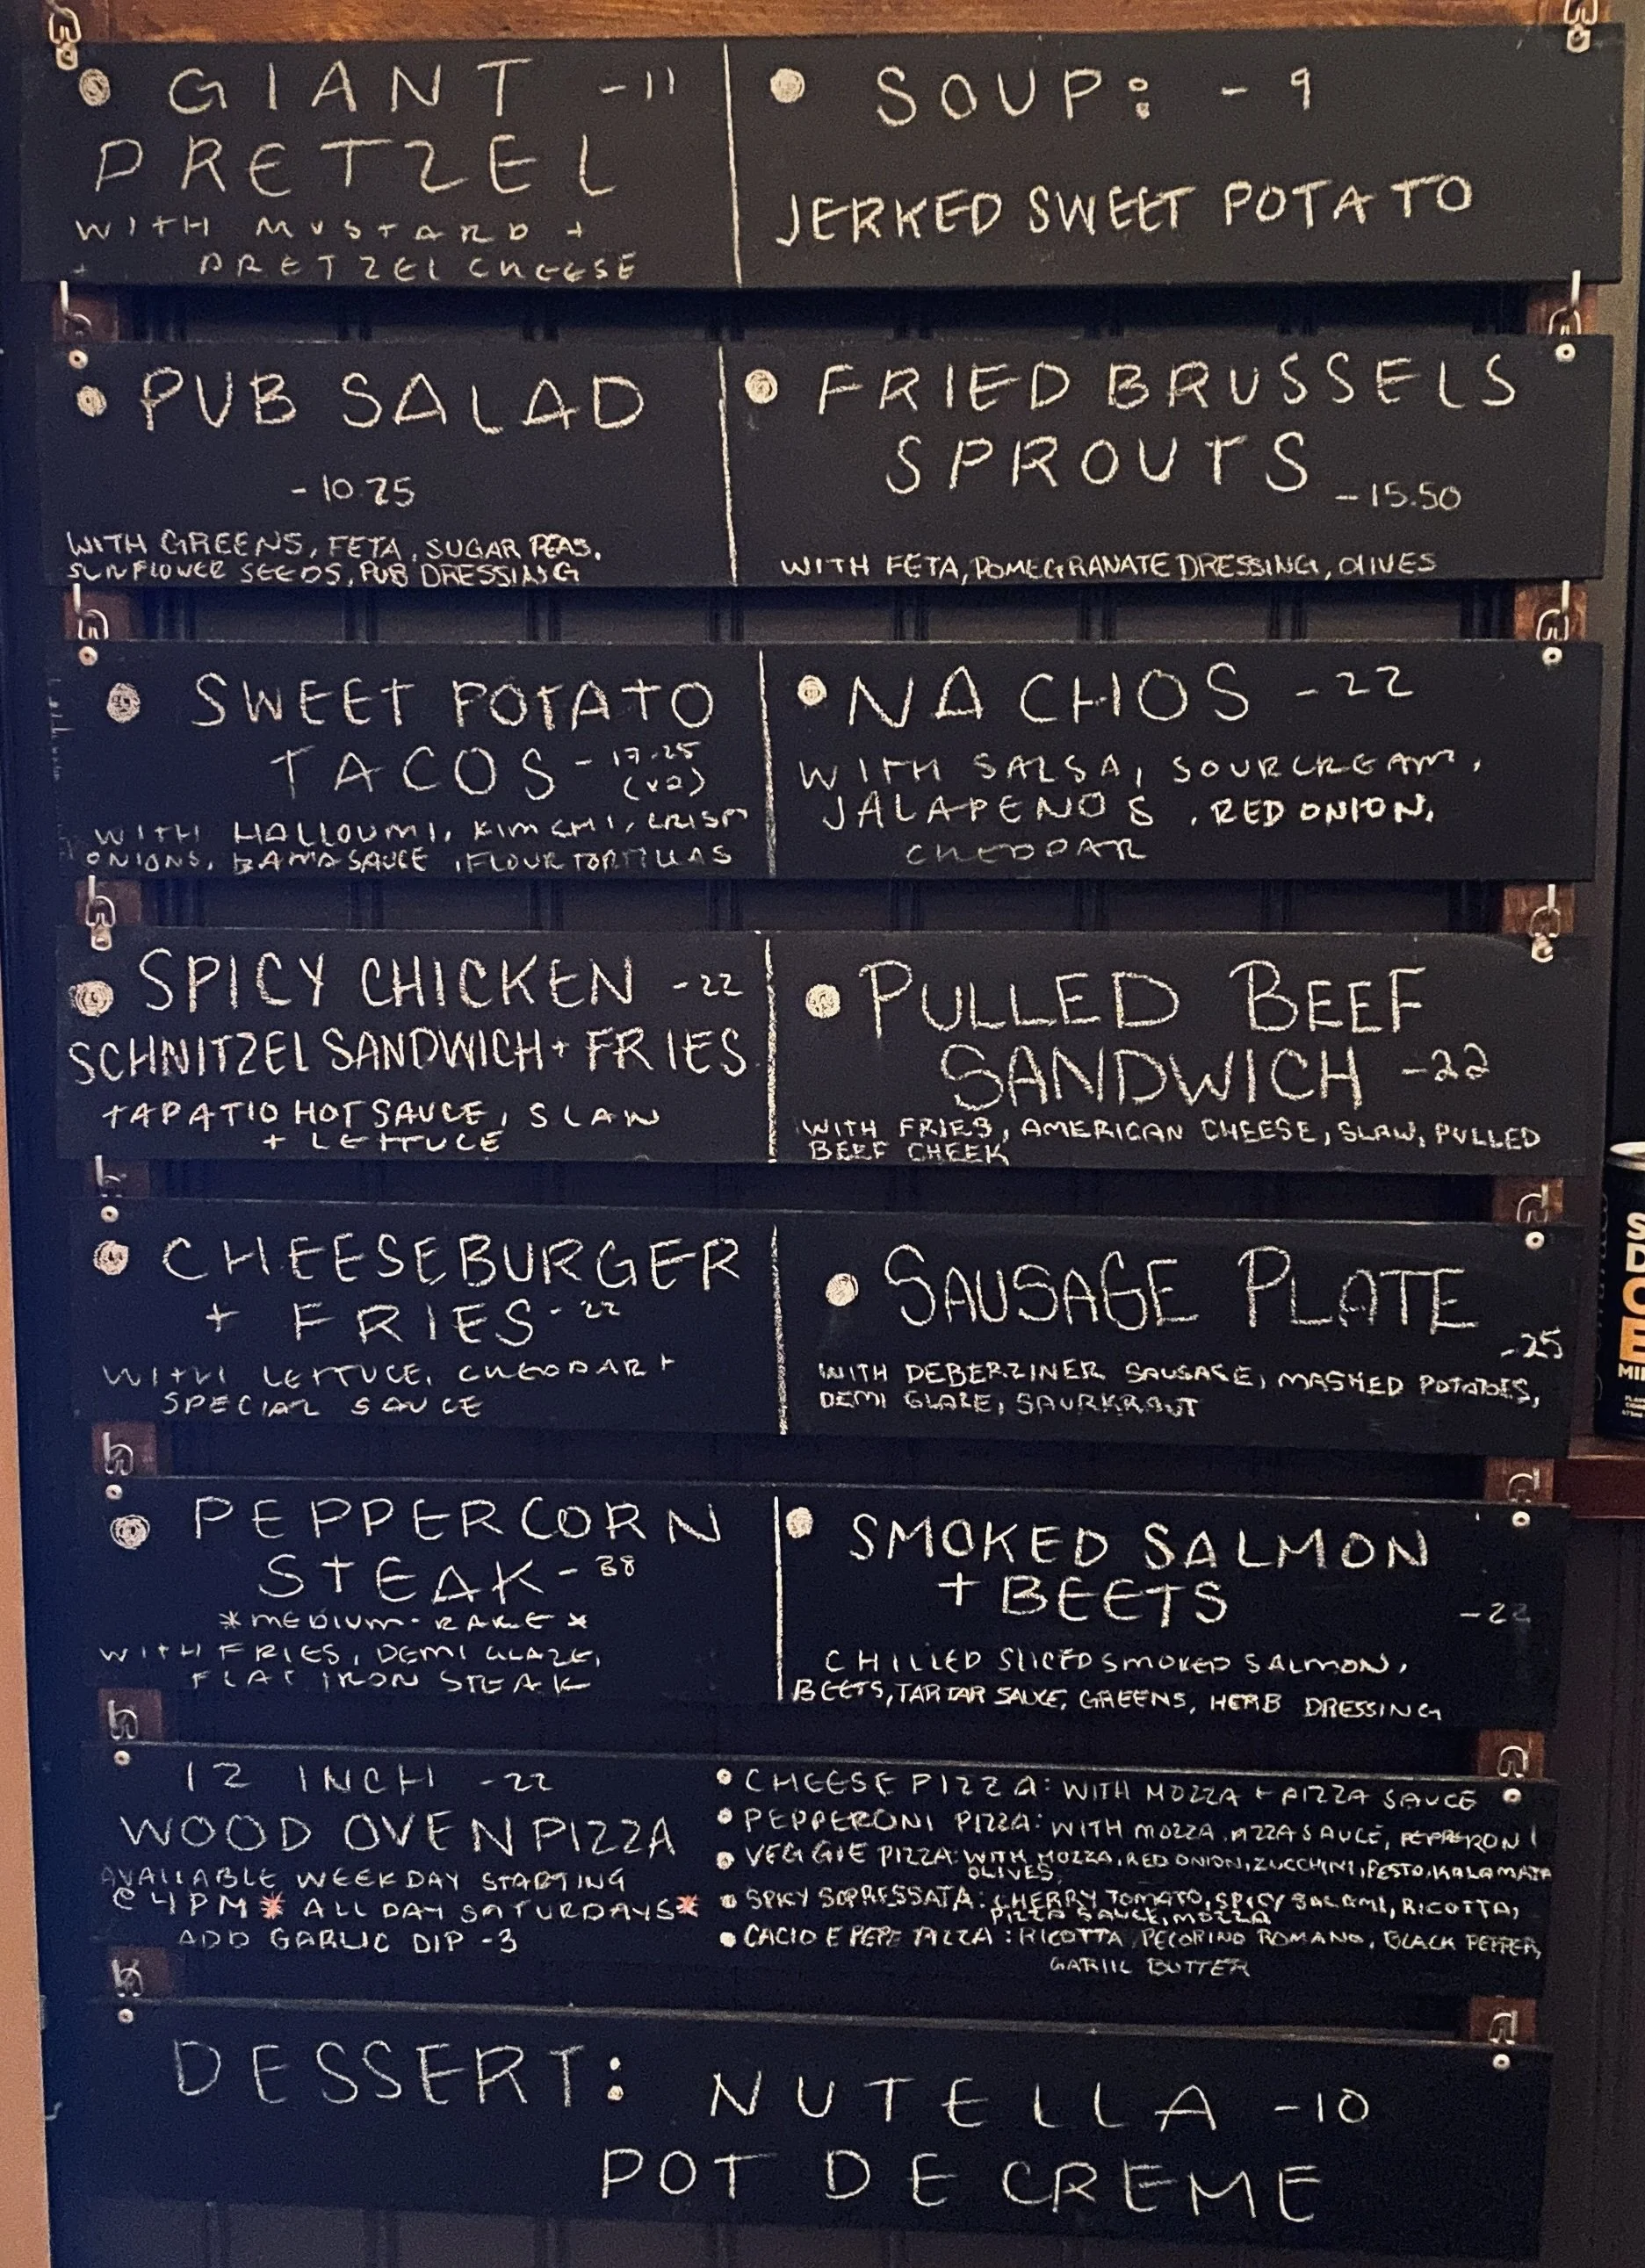 GIANT -11
PRETZEL
WITH MUSTARD +
+ PRETZEL CHEESE
SOUP: - 9
JERKED SWEET POTATO
PUB SALAD
-10.25
WITH GREENS, FETA, SUGAR PEAS,
SUNFLOWER SEEDS, PUB DRESSING
FRIED BRUSSELS
SPROUTS -15.50
WITH FETA, POMEGRANATE DRESSING, OLIVES
SWEET POTATO
TACOS -17.25
(x2)
WITH HALLOUMI, KIMCHI, CRISPY
ONIONS, BAMA SAUCE, FLOUR TORTILLAS
NACHOS -22
WITH SALSA, SOUR CREAM,
JALAPENOS, RED ONION,
CHEDDAR
SPICY CHICKEN -22
SCHNITZEL SANDWICH + FRIES
TAPATIO HOT SAUCE, SLAW
+ LETTUCE
PULLED BEEF
SANDWICH -22
WITH FRIES, AMERICAN CHEESE, SLAW, PULLED
BEEF CHEEK
CHEESEBURGER
+ FRIES -22
WITH LETTUCE, CHEDDAR +
SPECIAL SAUCE
SAUSAGE PLATE
-25
WITH DEBERZINER SAUSAGE, MASHED POTATOES,
DEMI GLAZE, SAURKRAUT
PEPPERCORN
STEAK -38
*MEDIUM-RARE*
WITH FRIES, DEMI GLAZE,
FLAT IRON STEAK
SMOKED SALMON
+ BEETS -22
CHILLED SLICED SMOKED SALMON,
BEETS, TARTAR SAUCE, GREENS, HERB DRESSING
12 INCH -22
WOOD OVEN PIZZA
AVAILABLE WEEKDAY STARTING
@ 4PM * ALL DAY SATURDAYS*
ADD GARLIC DIP -3
CHEESE PIZZA: WITH MOZZA + PIZZA SAUCE
PEPPERONI PIZZA: WITH MOZZA, PIZZA SAUCE, PEPPERONI
VEGGIE PIZZA: WITH MOZZA, RED ONION, ZUCCHINI, PESTO, KALAMATA
OLIVES,
SPICY SOPRESSATA: CHERRY TOMATO, SPICY SALAMI, RICOTTA,
PIZZA SAUCE, MOZZA
CACIO E PEPE PIZZA: RICOTTA, PECORINO ROMANO, BLACK PEPPER,
GARLIC BUTTER
DESSERT: NUTELLA -10
POT DE CREME